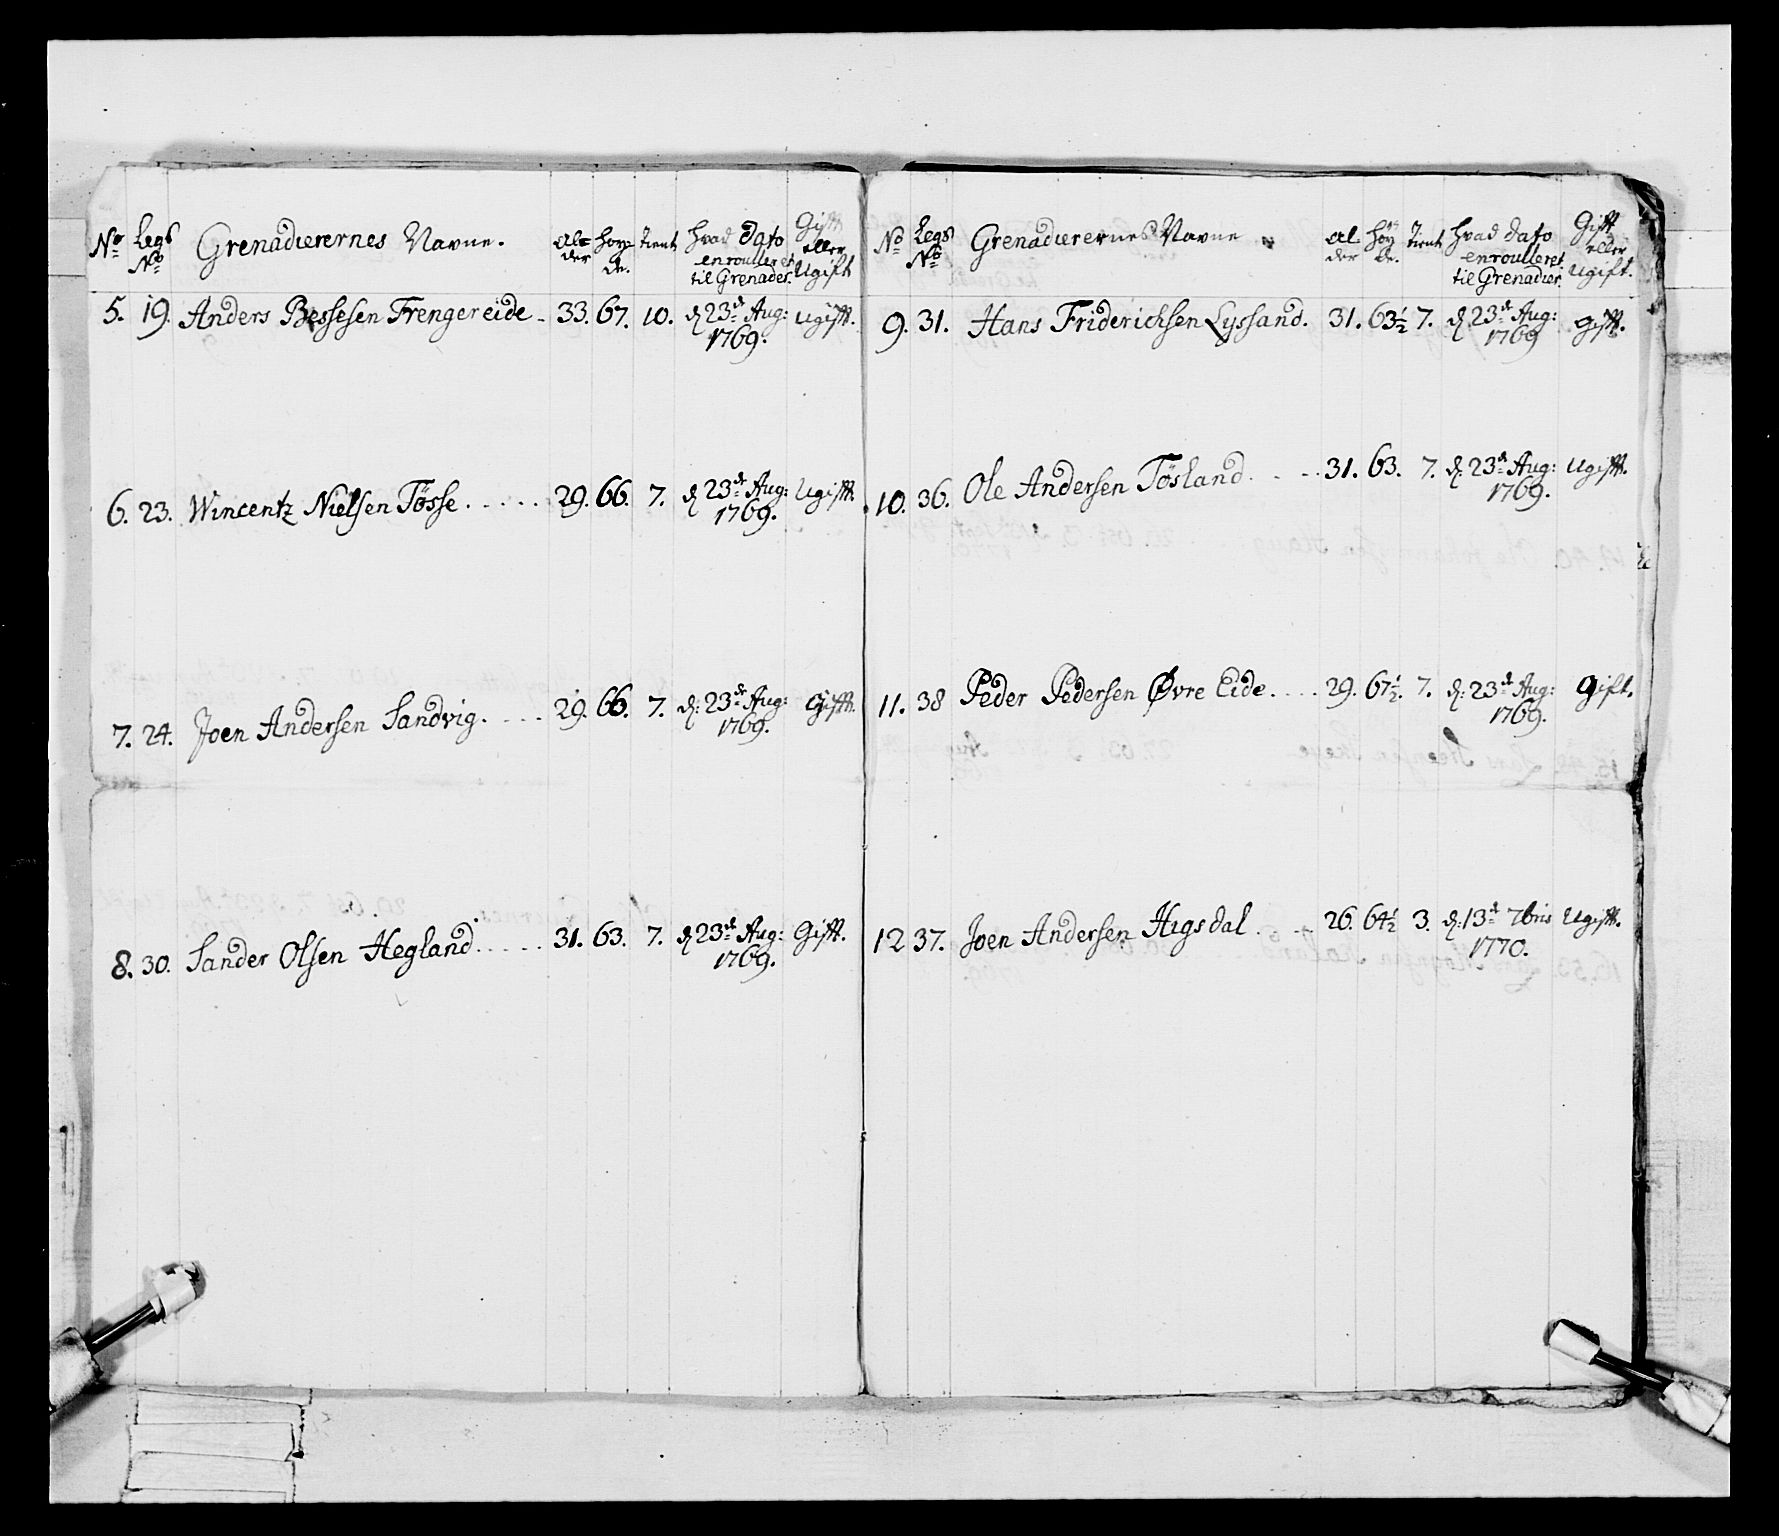 No Legs No Grenadierernes Navne. Alder høyde. Tient hvad Dato enroulleret til Grenader. Gift eller Ugift
5. 19. Anders Bessesen Frengereide. 33. 67. 10. d. 23de Aug: 1769. Ugift.
6. 23. Wincentz Nielsen Tösse..... 29. 66. 7. d. 23de Aug: 1769. Ugift.
7. 24. Joen Andersen Sandvig.... 29. 66. 7. d: 23de Aug: 1769. Gift.
8. 30. Sander Olsen Hegland..... 31. 63. 7. d. 23de Aug: 1769. Gift.
No Legs No Grenadierernes Navne Alder Høyde. Tient hvad dato enroulleret til Grenadier. Gift eller Ugift.
9. 31. Hans Friderichsen Lyssand. 31. 63½ 7. d. 23de Aug: 1769 Gift.
10. 36. Ole Andersen Tösland.... 31. 63. 7. d. 23de Aug: 1769. Ugift.
11. 38 Peder Pedersen Øvre Eide.... 29. 67½. 7. d: 23de Aug: 1769. Gift.
12 37. Joen Andersen Higsdal... 26. 64½ 3. d: 13de 7bris 1770. Ugift.